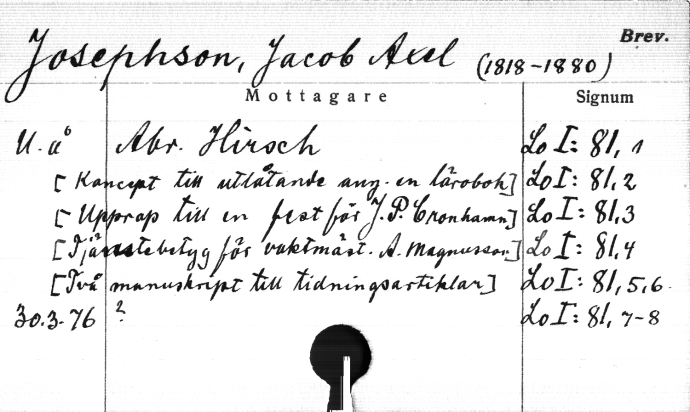 Brev.
Josephson, Jacob Axel (1818-1880)
Mottagare Signum
U. å Abr. Hirsch Lo I: 81, 1
[Koncept till utlåtande ang. en lärobok] Lo I: 81, 2
[Upprop till en fest för J. P. Cronhamn] Lo I: 81, 3
[Tjänstebetyg för vaktmäst. A. Magnusson] Lo I: 81, 4
[Två manuskript till tidningsartiklar] Lo I: 81, 5, 6.
30.3.76 ? Lo I: 81, 7-8